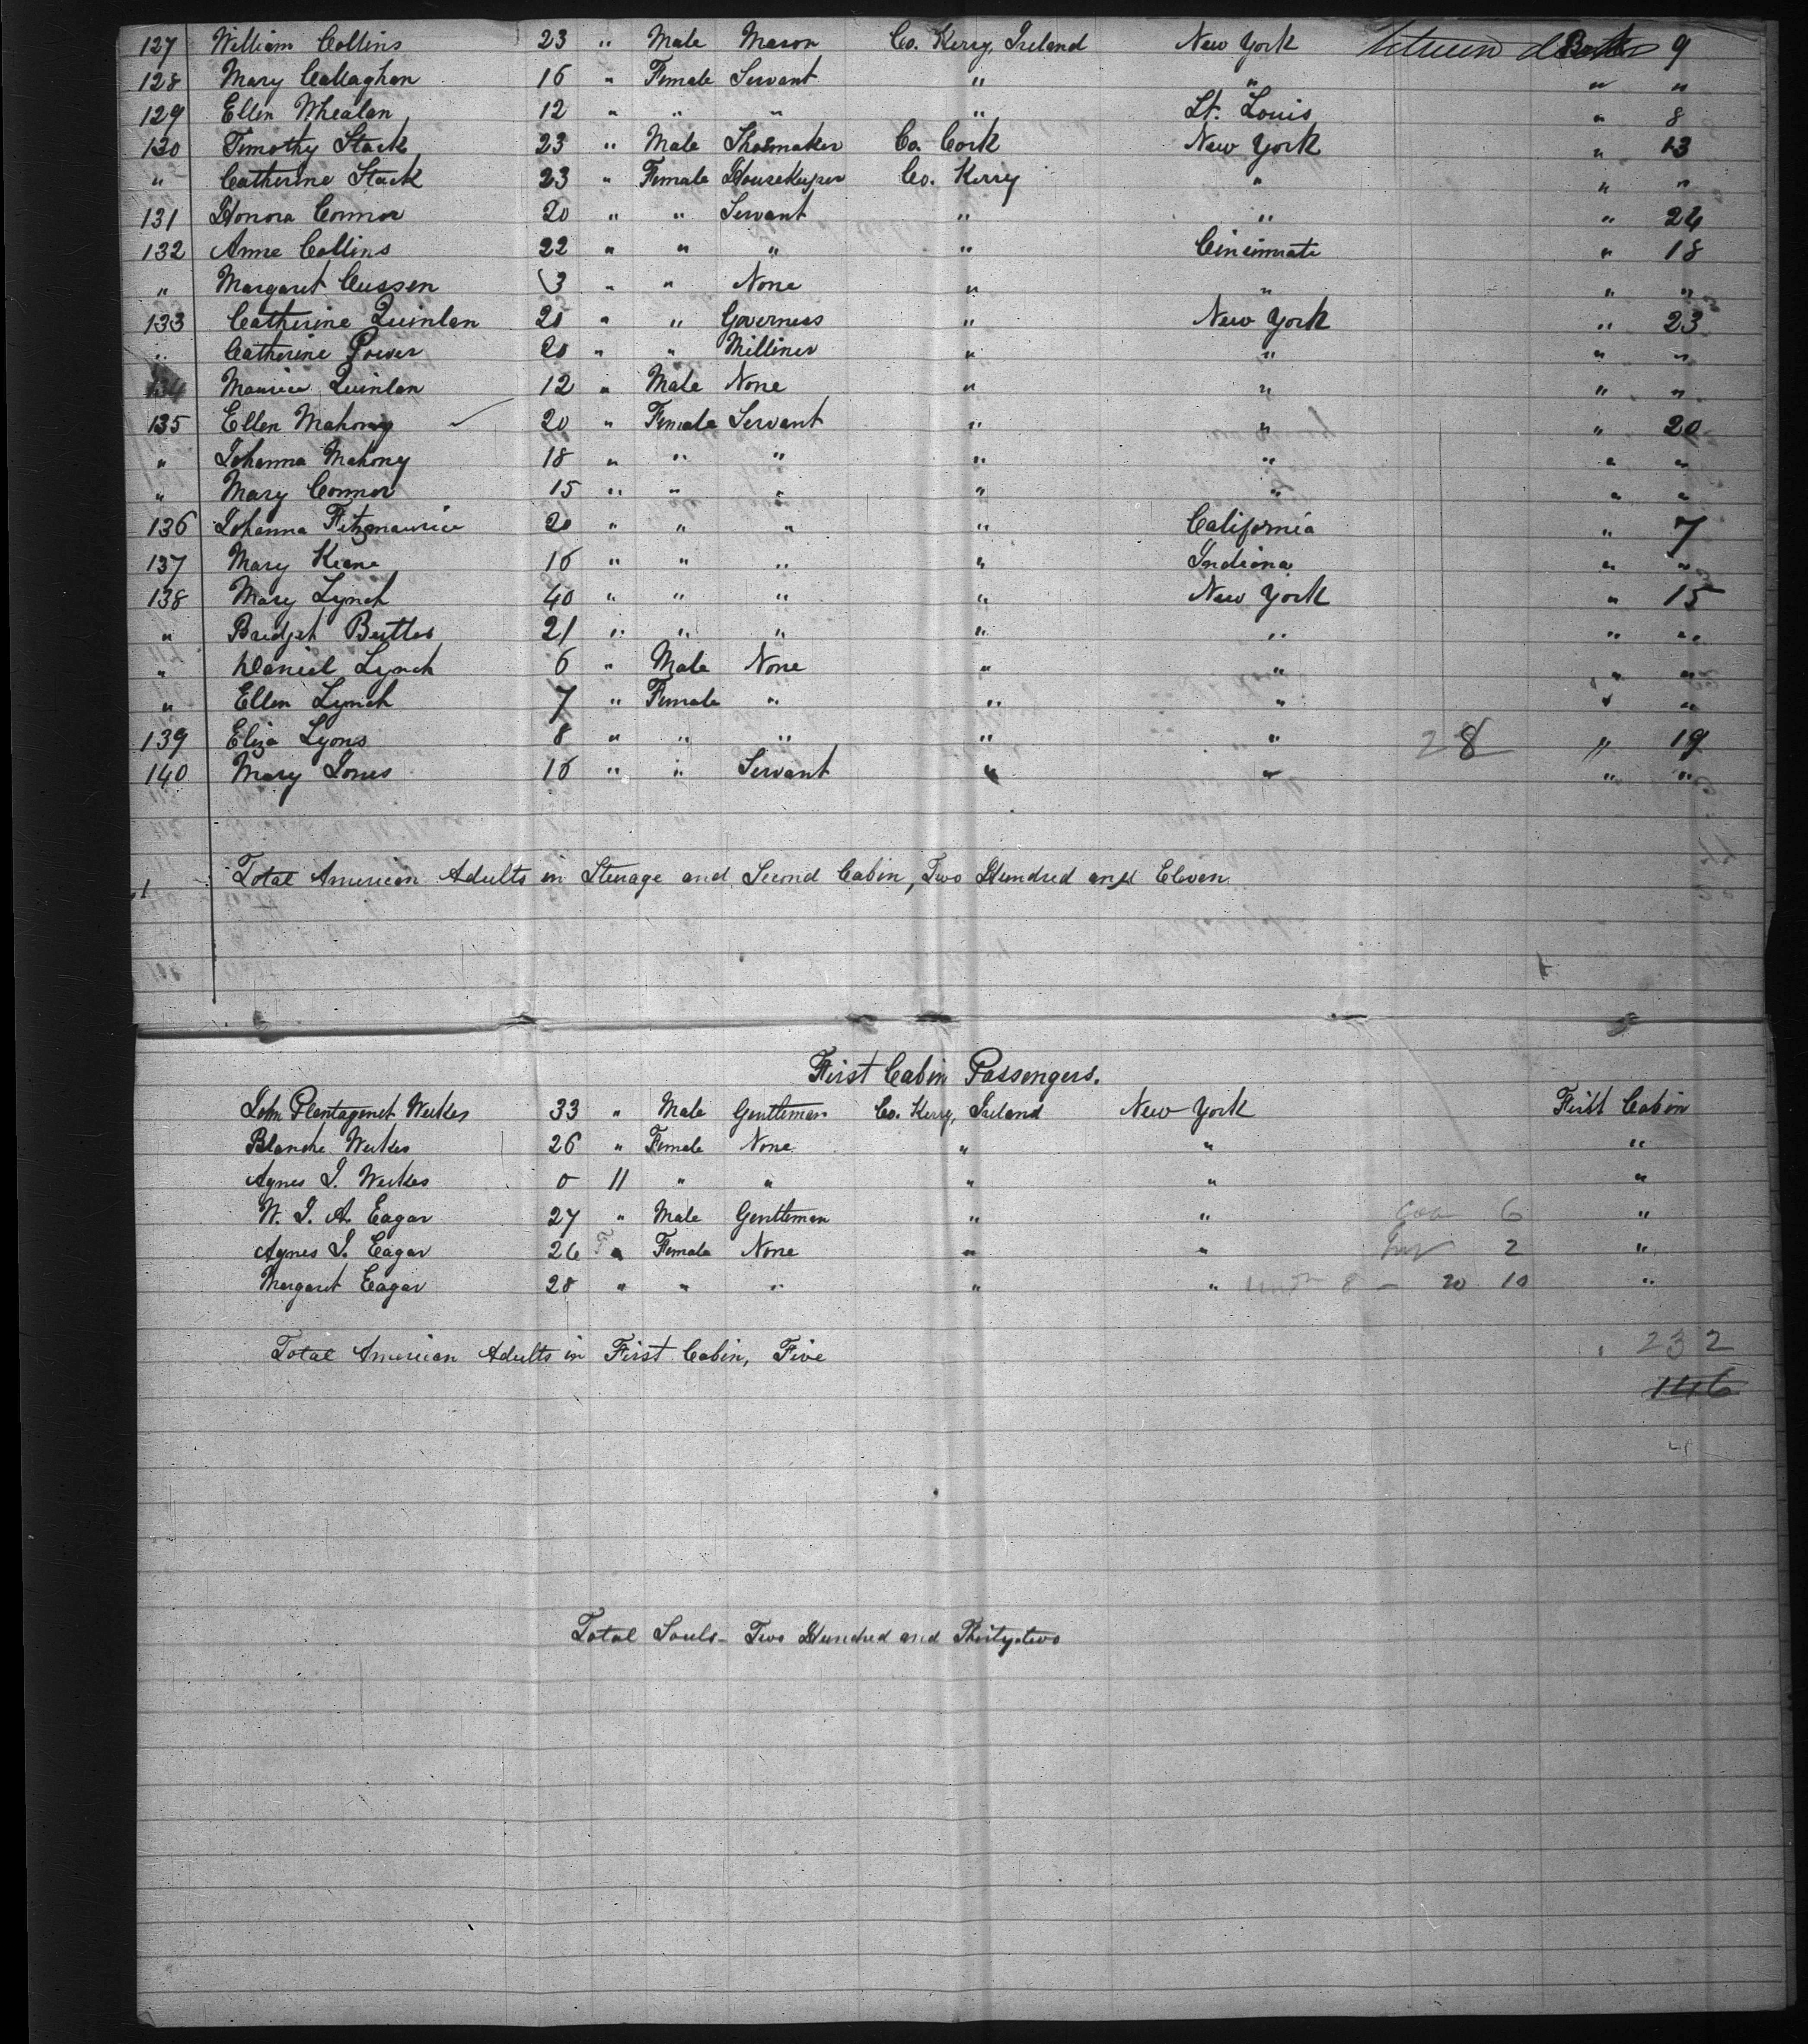 127 William Collins 23 " Male Mason Co. Kerry, Ireland New York between decks Berth 9
128 Mary Callaghan 16 " Female Servant " " " "
129 Ellen Whealan 12 " " " " St. Louis " 8
130 Timothy Stack 23 " Male Shoemaker Co. Cork New York " 13
" Catherine Stack 23 " Female Housekeeper Co. Kerry " " "
131 Honora Connor 20 " " Servant " " " 24
132 Anne Collins 22 " " " " Cincinnate " 18
" Margaret Cussen 3 " " None " " " "
133 Catherine Quinlan 20 " " Governess " New York " 23
" Catherine Power 20 " " Milliner " " " "
134 Maurice Quinlan 12 " Male None " " " "
135 Ellen Mahony 20 " Female Servant " " " 20
" Johanna Mahony 18 " " " " " " "
" Mary Connor 15 " " " " " " "
136 Johanna Fitzmaurice 20 " " " " California " 7
137 Mary Keane 16 " " " " Indiana " "
138 Mary Lynch 40 " " " " New York " 15
" Bridget Butler 21 " " " " " " "
" Daniel Lynch 6 " Male None " " " "
" Ellen Lynch 7 " Female " " " " "
139 Eliza Lyons 8 " " " " " 28 " 19
140 Mary Jones 16 " " Servant " " " "
Total American Adults in Sterage and Second Cabin, Two Hundred and Eleven
First Cabin Passengers.
John Plantagenet Weekes 33 " Male Gentleman Co. Kerry, Ireland New York First Cabin
Blanche Weekes 26 " Female None " " "
Agnes J. Weekes 0 11 " " " " "
W. J. A. Eagar 27 " Male Gentleman " " 6 "
Agnes J. Eagar 26 " Female None " " 2 "
Margaret Eagar 28 " " " " " 8 - 20 10 "
Total American Adults in First Cabin, Five
232
146
Total Souls - Two Hundred and Thirty-two